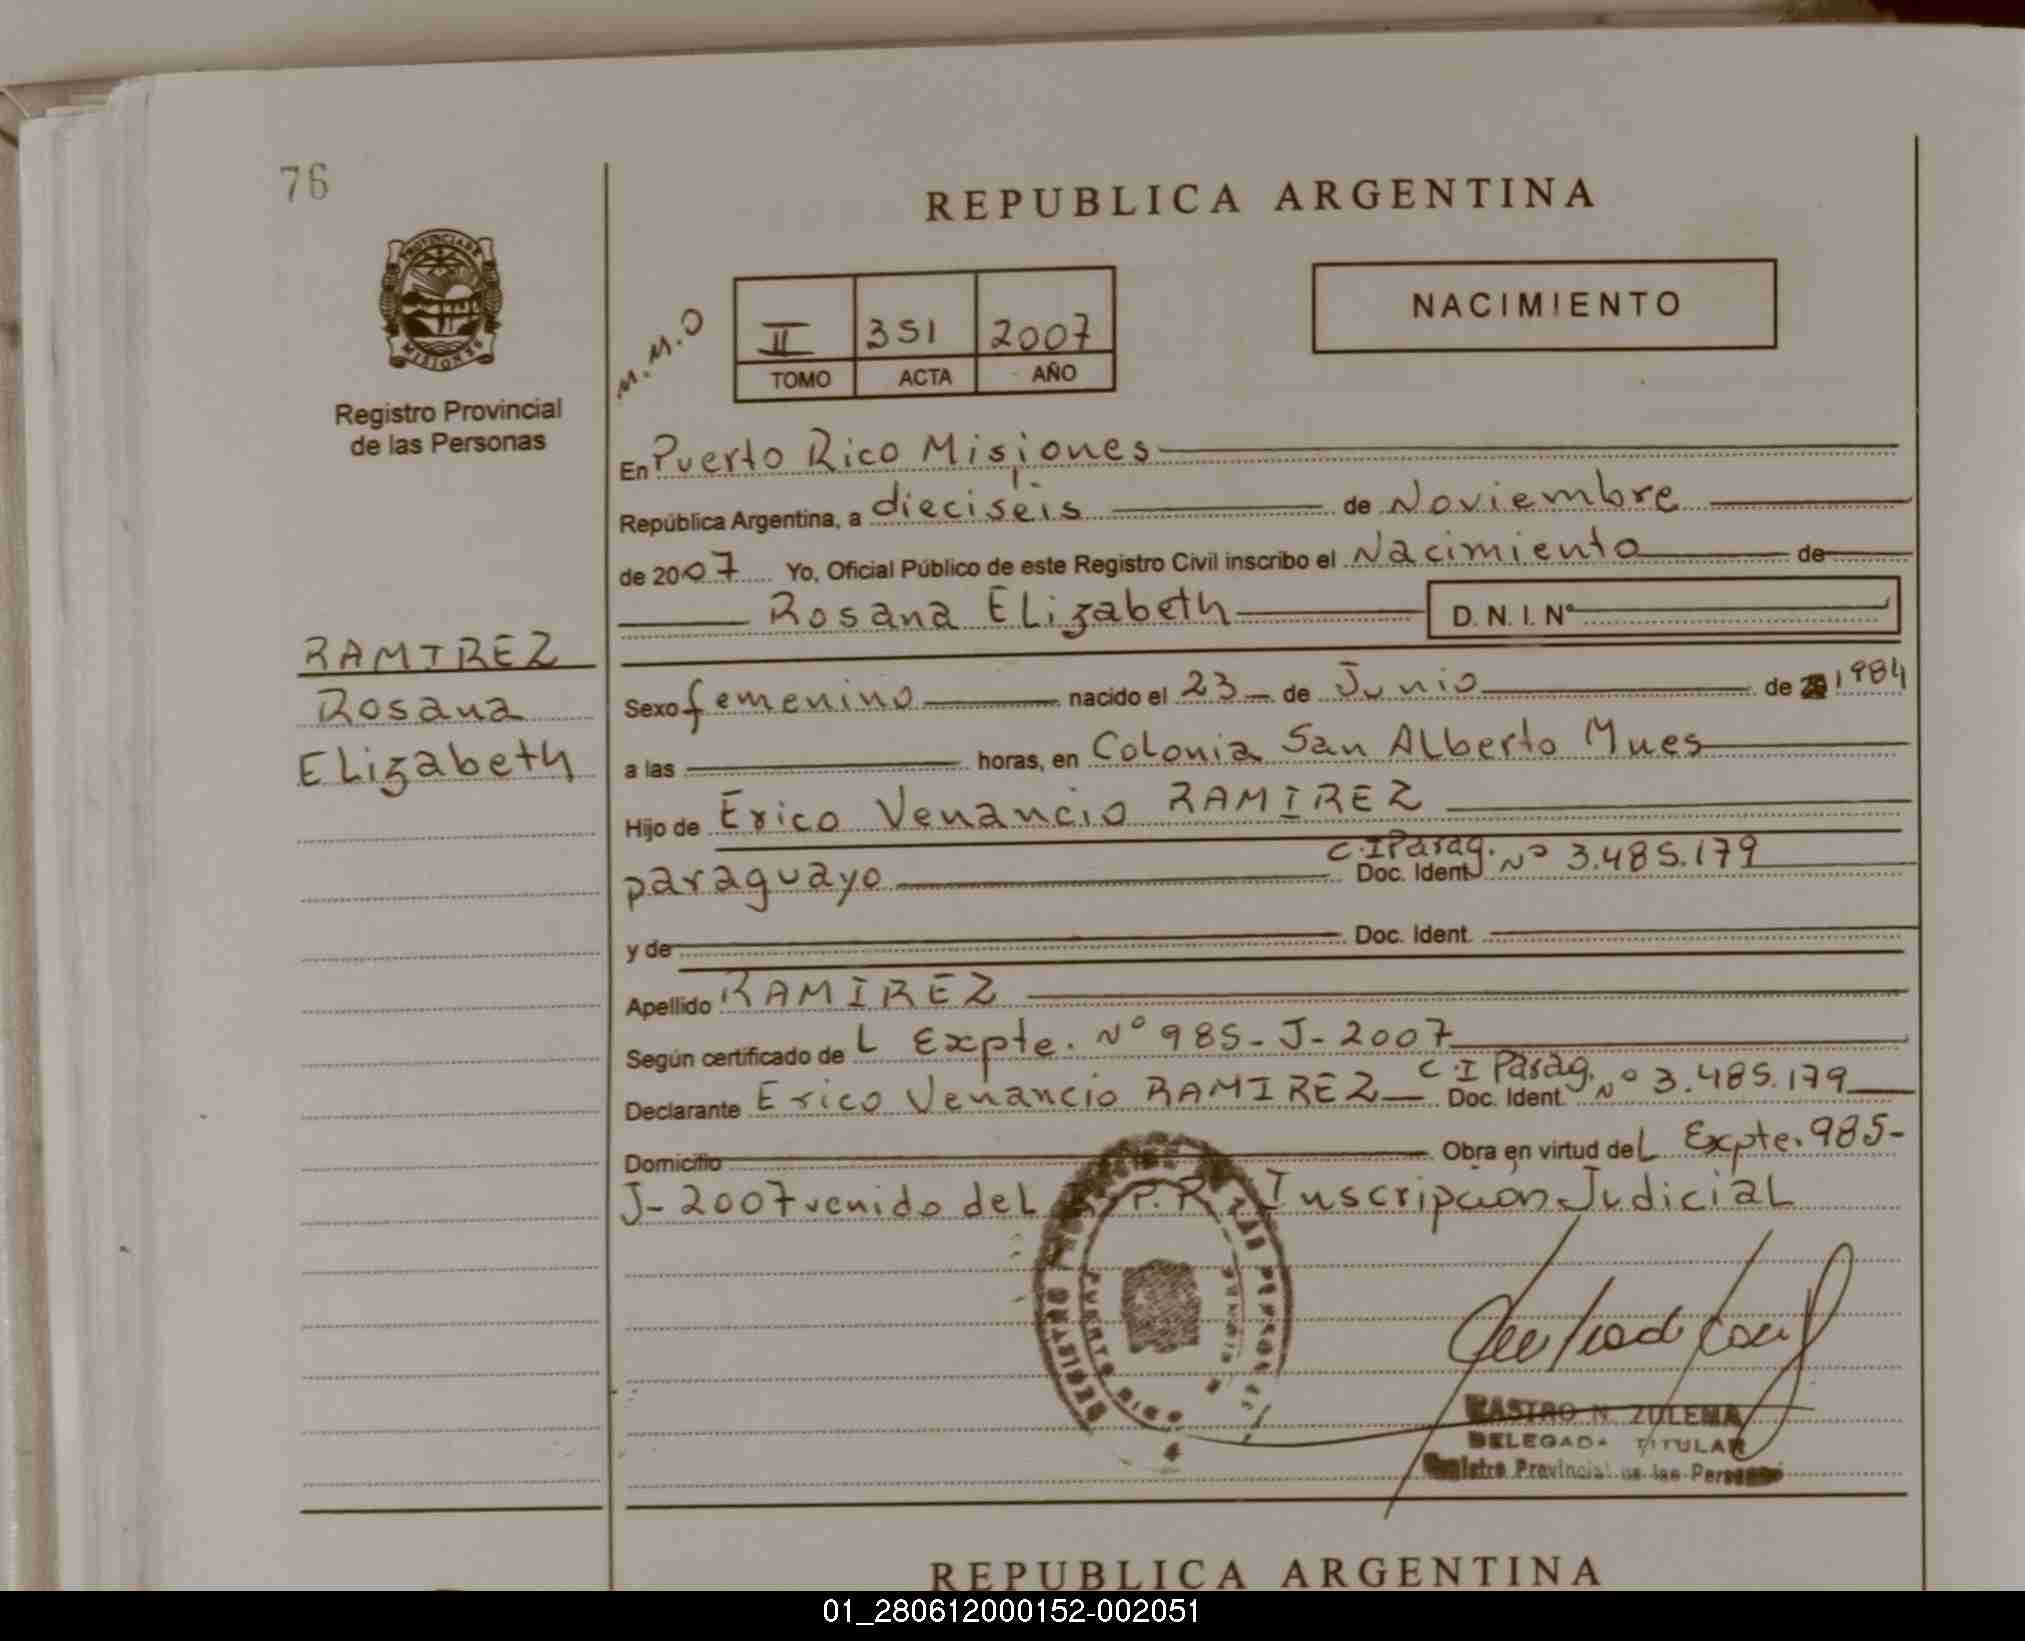 76
REPUBLICA ARGENTINA
PROVINCIA DE
MISIONES
Registro Provincial
de las Personas
M.M.O
II 351 2007
TOMO ACTA AÑO
NACIMIENTO
En Puerto Rico Misiones
República Argentina, a dieciséis de Noviembre
de 2007 Yo, Oficial Público de este Registro Civil inscribo el Nacimiento de
Rosana Elizabeth D. N. I. Nº
RAMIREZ
Rosana
Elizabeth
Sexo femenino nacido el 23 de Junio de 1984
a las horas, en Colonia San Alberto Mues
Hijo de Erico Venancio RAMIREZ
paraguayo Doc. Ident. C.I Parag. Nº 3.485.179
y de Doc. Ident.
Apellido RAMIREZ
Según certificado de L Expte. Nº 985-J-2007
Declarante Erico Venancio RAMIREZ Doc. Ident. C.I Parag. Nº 3.485.179
Domicilio Obra en virtud del Expte. 985-
J-2007 venido del P.R. Inscripción Judicial
PUERTO RICO
CASTRO N. ZULEMA
DELEGADA TITULAR
Registro Provincial de las Personas
REPUBLICA ARGENTINA
01_280612000152-002051